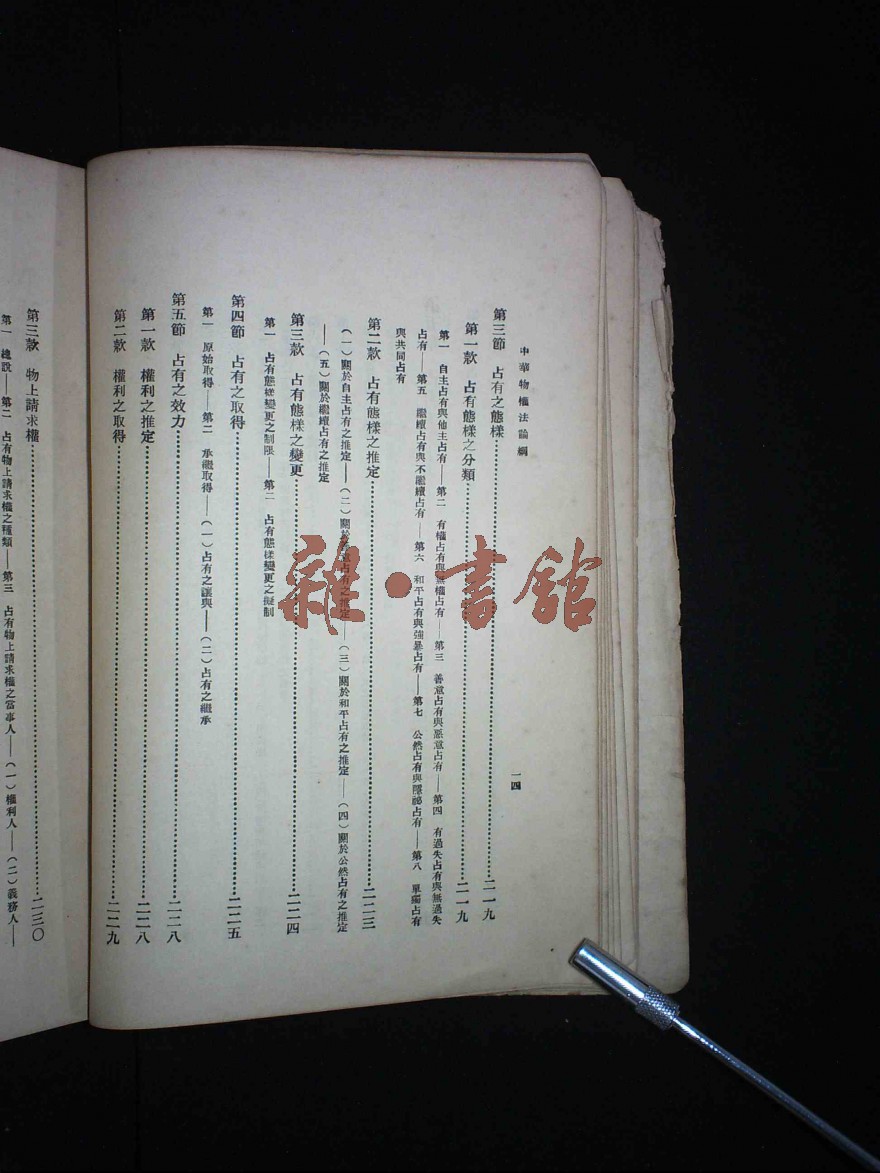 中華物權法論綱
一四
第三節 占有之態樣⋯⋯二一九
第一款 占有態樣之分類⋯⋯二一九
第一 自主占有與他主占有——第二 有權占有與無權占有——第三 善意占有與惡意占有——第四 有過失占有與無過失
占有——第五 繼續占有與不繼續占有——第六 和平占有與強暴占有——第七 公然占有與隱祕占有——第八 單獨占有
與共同占有
第二款 占有態樣之推定⋯⋯二二三
(一)關於自主占有之推定——(二)關於占有之推定——(三)關於和平占有之推定——(四)關於公然占有之推定
——(五)關於繼續占有之推定
第三款 占有態樣之變更⋯⋯二二四
第一 占有態樣變更之制限——第二 占有態樣變更之擬制
第四節 占有之取得⋯⋯二二五
第一 原始取得——第二 承繼取得——(一)占有之讓與——(二)占有之繼承
第五節 占有之效力⋯⋯二二八
第一款 權利之推定⋯⋯二二八
第二款 權利之取得⋯⋯二二九
第三款 物上請求權⋯⋯二三〇
第一 總說——第二 占有物上請求權之種類——第三 占有物上請求權之當事人——(一)權利人——(二)義務人——
雜·書館